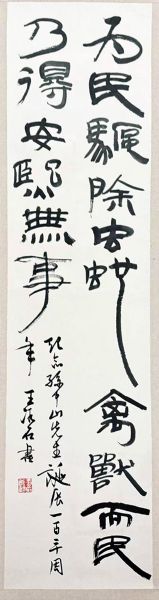 为民驅除虫蛇禽獸而民
乃得安熙無事
纪念孫中山先生诞辰一百三十周
年 王 石书